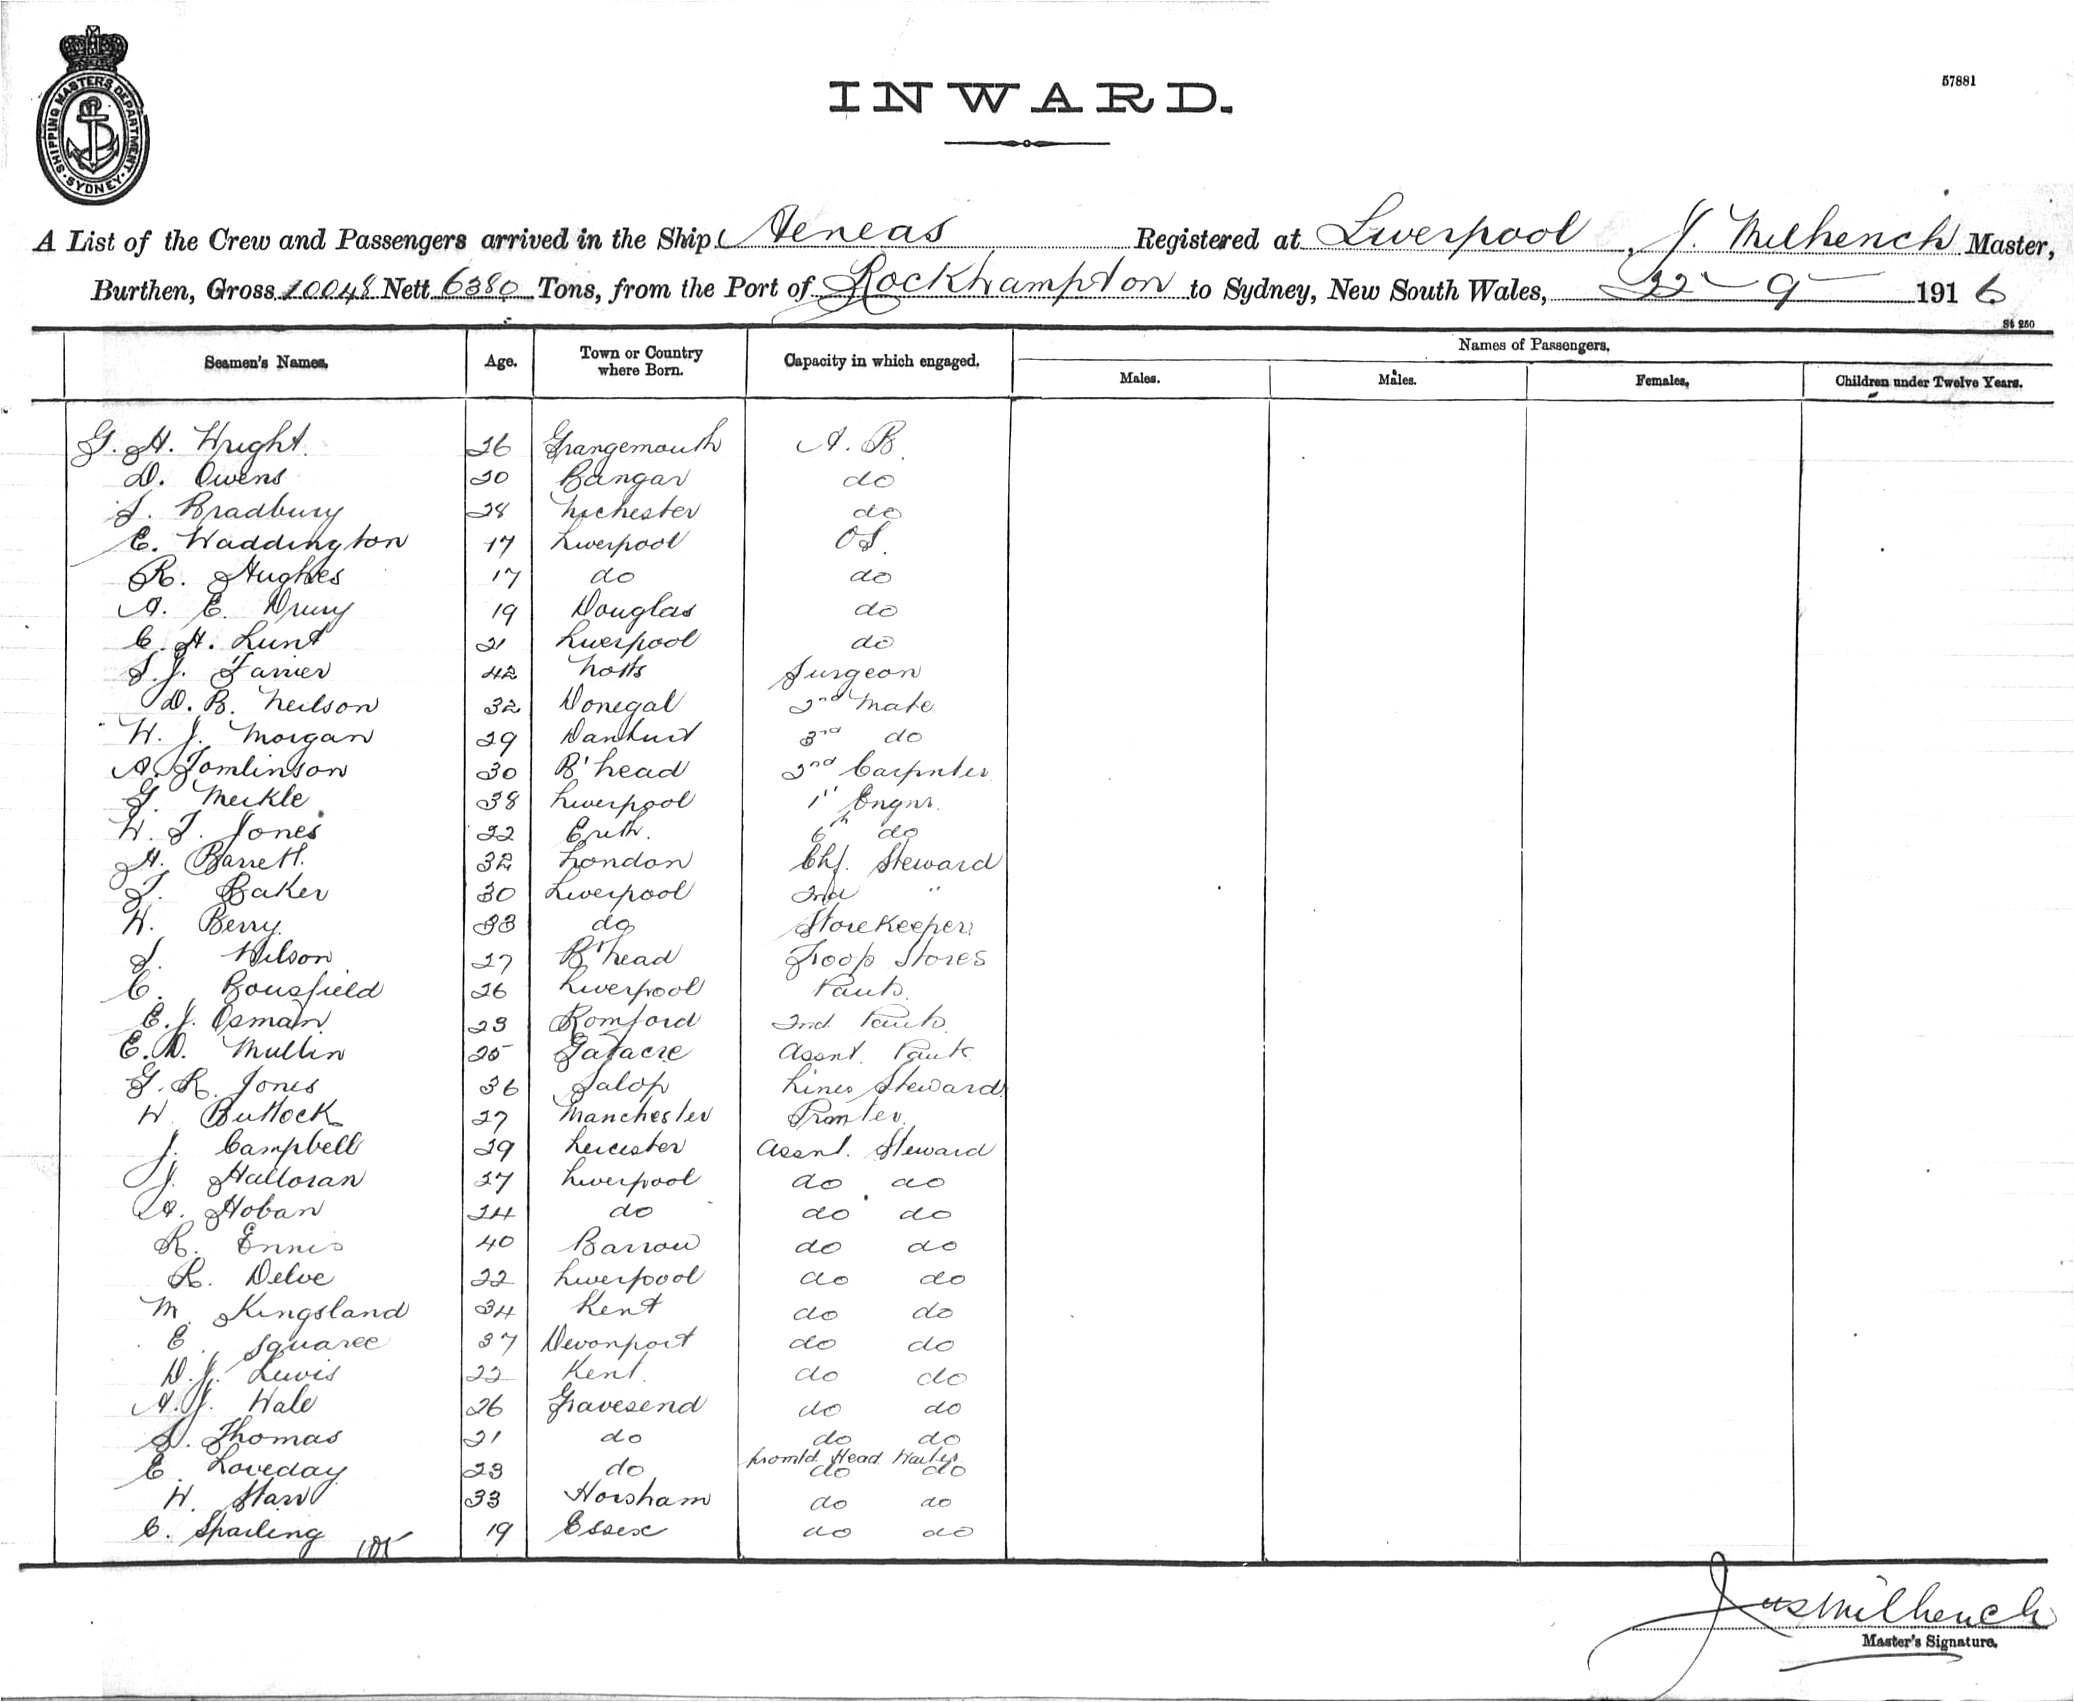 SHIPPING MASTERS DEPARTMENT · SYDNEY ·
57881
INWARD.
A List of the Crew and Passengers arrived in the Ship Aeneas Registered at Liverpool, J. Milhench Master,
Burthen, Gross 10048 Nett 6380 Tons, from the Port of Rockhampton to Sydney, New South Wales, 22 - 9 - 1916
St 250
Seamen's Names. Age. Town or Country where Born. Capacity in which engaged. Names of Passengers.
Males. Males. Females. Children under Twelve Years.
G. H. Wright. 26 Grangemouth A. B.
D. Owens 20 Bangor do
S. Bradbury 28 do
E. Waddington 17 Liverpool OS.
R. Hughes 17 do do
A. E. Drury 19 Douglas do
C. H. Lunt 21 Liverpool do
S. J. 42 Notts Surgeon
D. B. Neilson 32 Donegal 2nd Mate
W. J. Morgan 29 3rd do
A. Tomlinson 30 B'head 2nd Carpnter
G. Meikle 38 Liverpool 1st Engnr.
W. T. Jones 22 Erith. 6th do
H. Barrett. 32 London Chf. Steward
T. Baker 30 Liverpool 2nd "
W. Berry. 33 do Storekeeper
S. Wilson 27 B'head Troop Stores
C. Bousfield 26 Liverpool Pantr.
E. J. Osmain 23 Romford 2nd Pantr.
E. D. Mullin 25 Gatacre Assnt. Pantr.
G. R. Jones 36 Salop Linen Steward
W. Bullock 27 Manchester Prnter
J. Campbell 29 Leicester Assnt. Steward
J. Halloran 27 Liverpool do do
A. Hoban 24 do do do
R. Ennis 40 Barrow do do
R. Delve 22 Liverpool do do
M. Kingsland 34 Kent do do
E. Squaree 37 Devonport do do
D. J. Lewis 22 Kent. do do
A. J. Wale 26 Gravesend do do
S. Thomas 21 do do do
promtd Head Waiter
E. Loveday 23 do do do
W. Starr 33 Horsham do do
C. Sparling 19 Essex do do
105
Jas Milhench
Master's Signature.